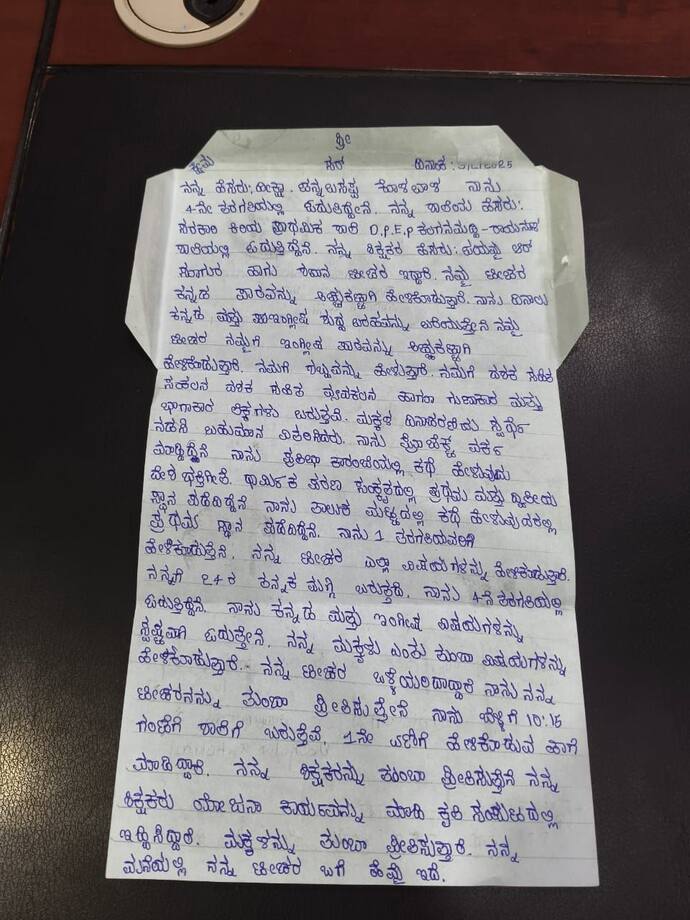 ಶ್ರೀ
ಕ್ಷೇಮ ಸರ್ ದಿನಾಂಕ: 3/2/2025
ನನ್ನ ಹೆಸರು: ಚನ್ನಬಸಪ್ಪ ನಾನು
4ನೇ ತರಗತಿಯಲ್ಲಿ ಓದುತಿದ್ದೇನೆ. ನನ್ನ ಶಾಲೆಯ ಹೆಸರು:
ಸರಕಾರಿ ಕಿರಿಯ ಪ್ರಾಥಮಿಕ ಶಾಲೆ D.P.E.P
ಶಾಲೆಯಲ್ಲಿ ಓದುತ್ತಿದ್ದೆನೆ. ನನ್ನ ಶಿಕ್ಷಕರ ಹೆಸರು:
ಹಾಗು ಟೀಚರ ಇದ್ದಾರೆ. ನಮ್ಮ ಟೀಚರ
ಕನ್ನಡ ಪಾಠವನ್ನು ಅಚ್ಚುಕಟ್ಟಾಗಿ ಹೇಳಿಕೊಡುತ್ತಾರೆ. ನಾನು ದಿನಾಲು
ಕನ್ನಡ ಮತ್ತು ಶುದ್ಧ ಬರಹವನ್ನು ಬರಿಯುತ್ತೇನೆ ನಮ್ಮ
ಟೀಚರ ನಮ್ಮಗೆ ಇಂಗ್ಲೀಷ ಪಾಠವನ್ನು ಅಚ್ಚುಕಟ್ಟಾಗಿ
ಹೇಳಿಕೊಡುತ್ತಾರೆ. ನಮಗೆ ಹೇಳುತ್ತಾರೆ. ನಮಗೆ ದಶಕ ಸಹಿತ
ಸಂಕಲನ ದಶಕ ಸಹಿತ ವ್ಯವಕಲನ ಹಾಗೂ ಗುಣಾಕಾರ ಮತ್ತು
ಭಾಗಾಕಾರ ಲೆಕ್ಕಗಳು ಬರುತ್ತವೆ. ಮಕ್ಕಳ ದಿನಾಚರಣೆಯ ಸ್ಪರ್ಧೆ
ನಡೆಸಿ ಬಹುಮಾನ ವಿತರಿಸಿದರು. ನಾನು ಪ್ರೊಜೆಕ್ಟ ವರ್ಕ
ಮಾಡಿದ್ದೆನೆ ನಾನು ಪ್ರತಿಭಾ ಕಾರಂಜಿಯಲ್ಲಿ ಕಥೆ ಹೇಳುವುದು
ದೇಶ ಭಕ್ತಿಗೀತೆ. ಧಾರ್ಮಿಕ ಪಠಣ ಸಂಸ್ಕೃತದಲ್ಲಿ ಪ್ರಥಮ ಮತ್ತು ದ್ವಿತೀಯ
ಸ್ಥಾನ ಪಡೆದಿದ್ದೆನೆ ನಾನು ತಾಲುಕ ಮಟ್ಟದಲ್ಲಿ ಕಥೆ ಹೇಳುವುದರಲ್ಲಿ
ಪ್ರಥಮ ಸ್ಥಾನ ಪಡೆದಿದ್ದೆನೆ. ನಾನು 1 ತರಗತಿಯವರಿಗೆ
ಹೇಳಿಕೊಡುತ್ತೆನೆ. ನನ್ನ ಟೀಚರ ಎಲ್ಲಾ ವಿಷಯಗಳನ್ನು ಹೇಳಿಕೊಡುತ್ತಾರೆ.
ನನ್ನಗೆ 24 ರ ತನ್ನಕ ಮಗ್ಗಿ ಬರುತ್ತದೆ. ನಾನು 4ನೆ ತರಗತಿಯಲ್ಲಿ
ಓದುತ್ತಿದ್ದೆನೆ. ನಾನು ಕನ್ನಡ ಮತ್ತು ಇಂಗ್ಲೀಷ ವಿಷಯಗಳನ್ನು
ಸ್ಪಷ್ಟವಾಗಿ ಓದುತ್ತೇನೆ. ನನ್ನ ಮಕ್ಕಳು ಎಂತು ತುಂಬಾ ವಿಷಯಗಳನ್ನು
ಹೇಳಿಕೊಡುತ್ತಾರೆ. ನನ್ನ ಟೀಚರ ಒಳ್ಳೆಯರಿದಾದ್ದಾರೆ ನಾನು ನನ್ನ
ಟೀಚರನನ್ನು ತುಂಬಾ ಪ್ರೀತಿಸುತ್ತೇನೆ ನಾನು ಬೆಳ್ಳಿಗೆ 10:15
ಗಂಟೆಗೆ ಶಾಲೆಗೆ ಬರುತ್ತೆವೆ 1ನೇ ಹೇಳಿಕೊಡುವ ಹಾಗೆ
ಮಾಡಿದ್ದಾರೆ. ನನ್ನ ಶಿಕ್ಷಕರನ್ನು ತುಂಬಾ ಪ್ರೀತಿಸುತ್ತೆನೆ ನನ್ನ
ಶಿಕ್ಷಕರು ಯೋಜನಾ ಕಾರ್ಯವನ್ನು ಮಾಡಿ ಕೃತಿ ಸಂಪುಟದಲ್ಲಿ
ಇಟ್ಟಿಸಿದ್ದಾರೆ. ಮಕ್ಕಳನ್ನು ತುಂಬಾ ಪ್ರೀತಿಸುತ್ತಾರೆ. ನನ್ನ
ಮನೆಯಲ್ಲಿ ನನ್ನ ಟೀಚರ ಬಗೆ ಹೆಮ್ಮೆ ಇದೆ.